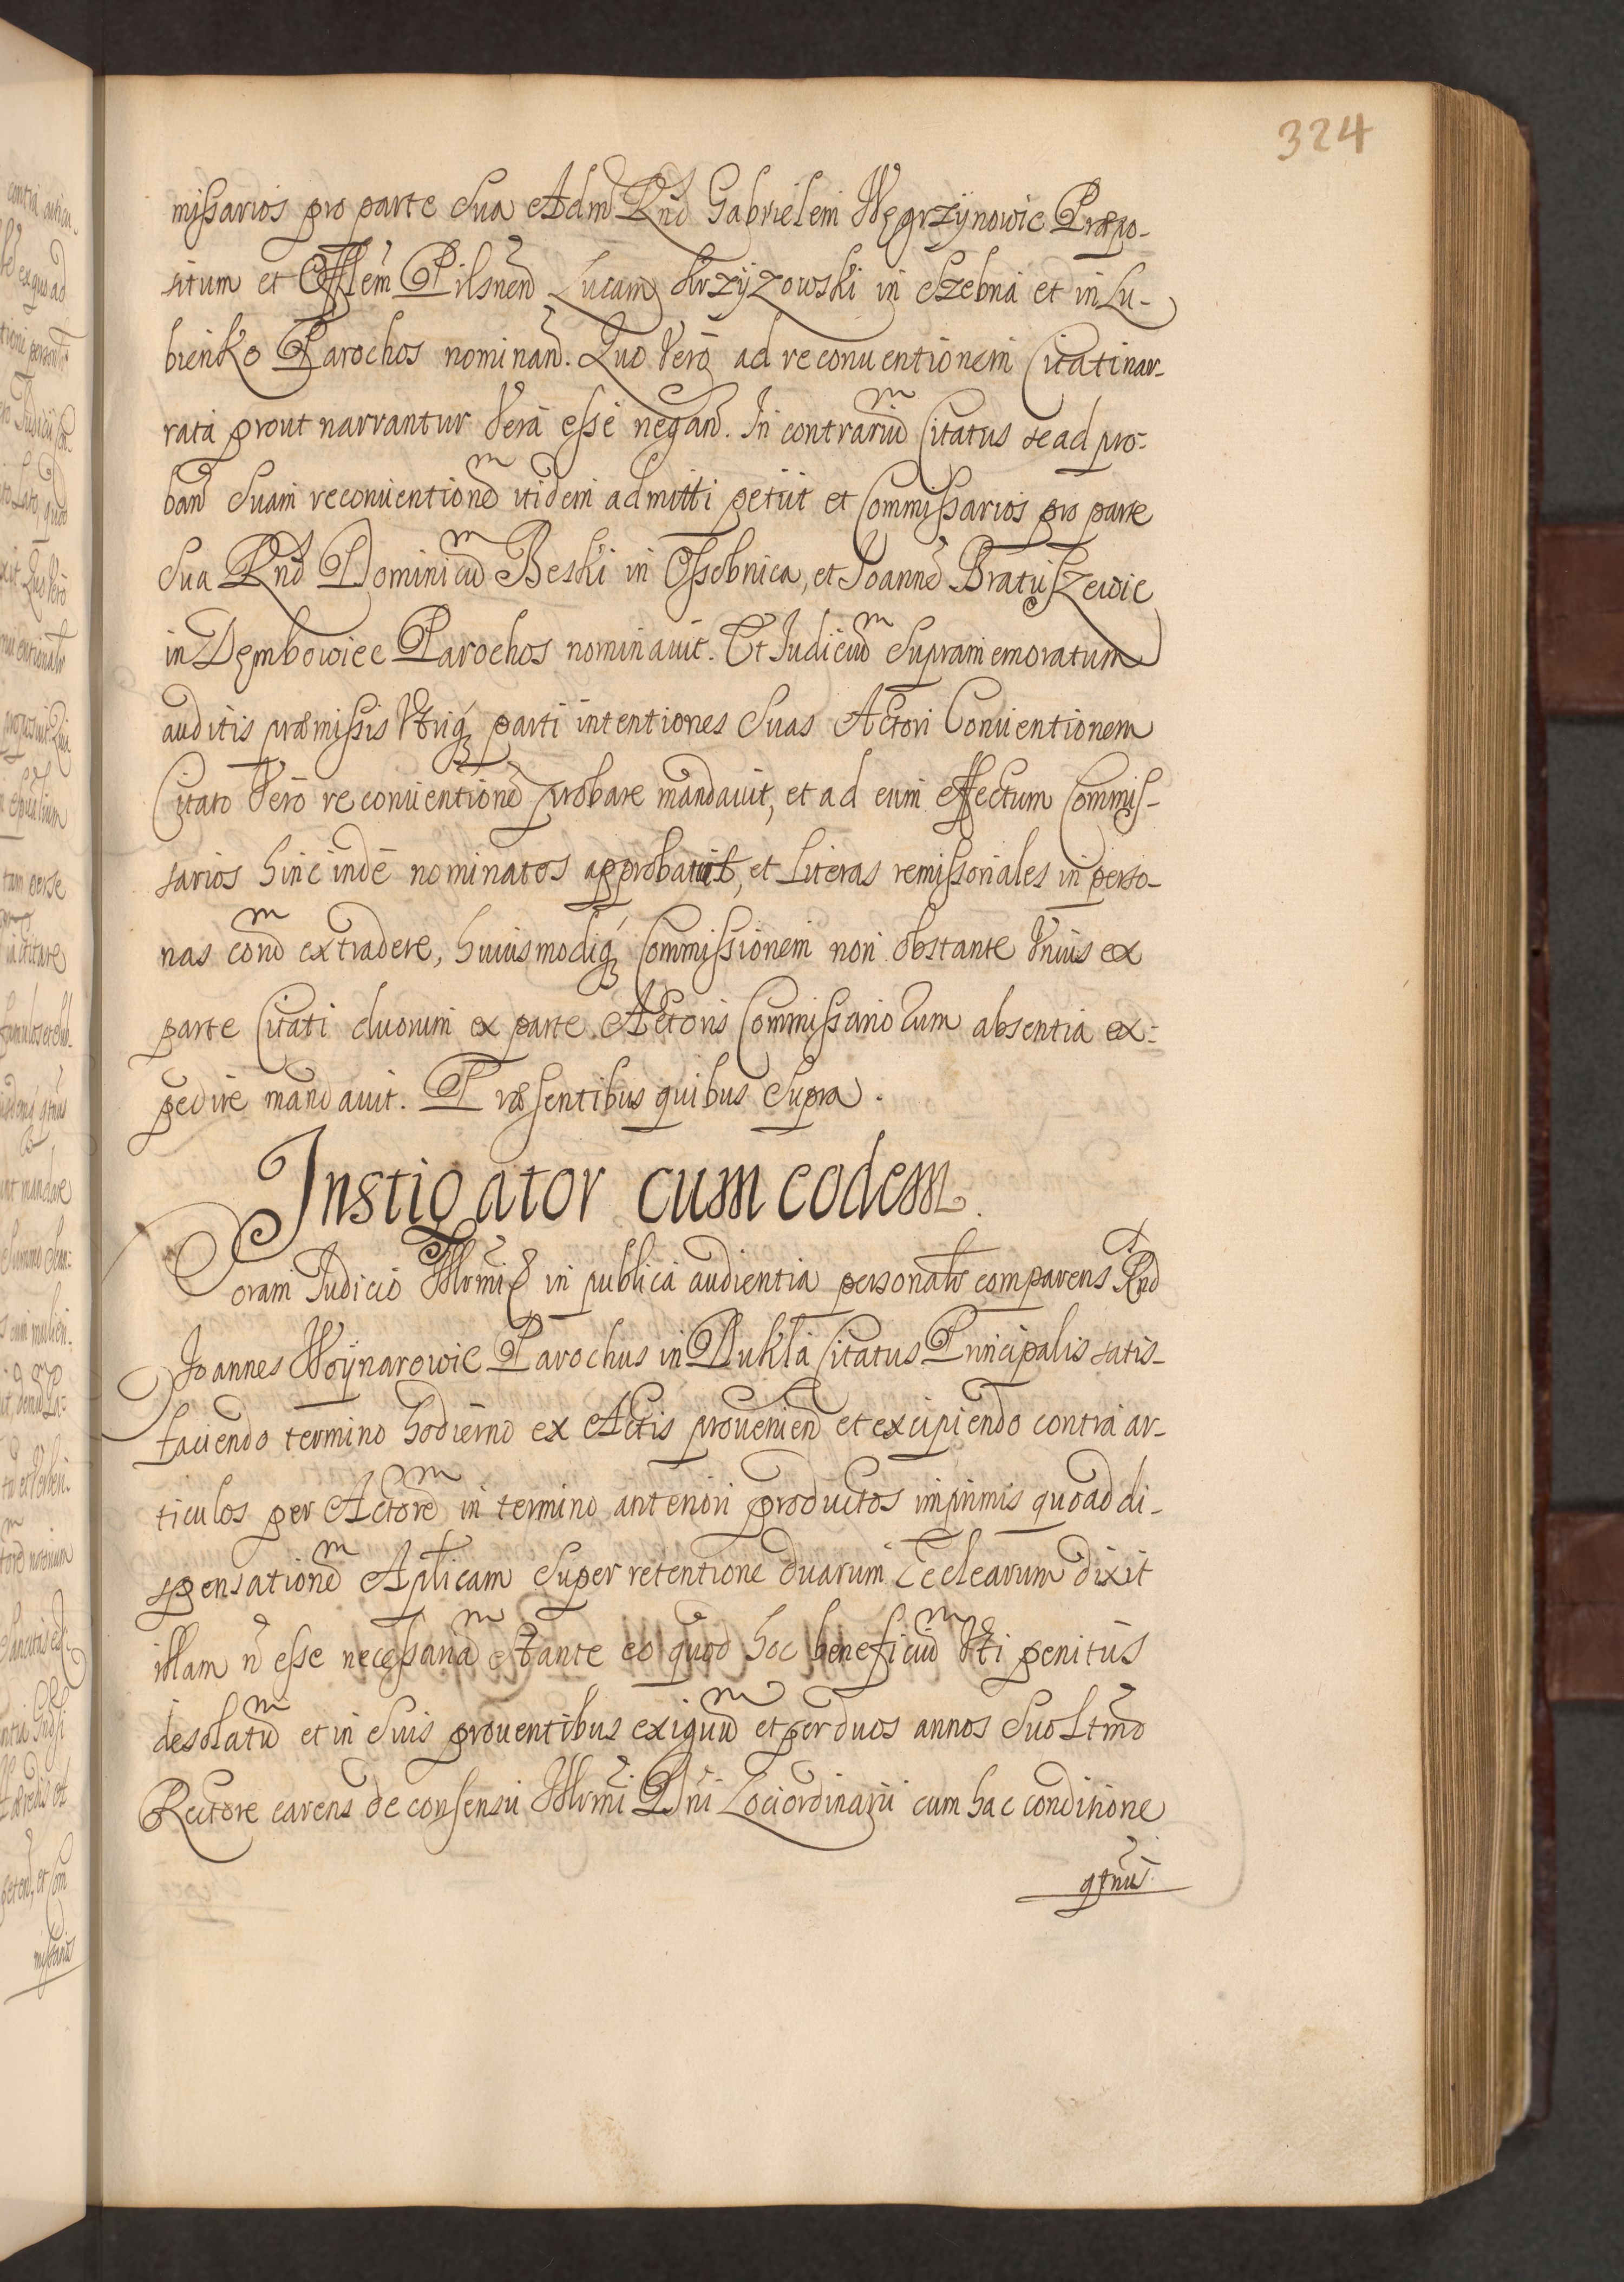 324
missarios pro parte Sua Adm Rnd Gabrielem Węgrzynowic Præpo-
situm et Offlem Pilsnen Lucam Krzyzowski in Szebna et in Lu-
bienko Parochos nominand. Quo Vero ad reconventionem Citati nar-
rata prout narrantur Vera esse negand. In contrarium Citatus se ad pro-
band Suam reconventionem itidem admitti petiit et Commissarios pro parte
Sua Rnd Dominicum Beski in Ossobnica, et Joannem Bratiszewic
in Dembowiec Parochos nominavit. Et Iudicium Supramemoratum
auditis præmissis Utriq parti intentiones Suas Actori Conventionem
Citato Vero reconventionem probare mandavit, et ad eum effectum Commis-
sarios hinc inde nominatos approbavit, et Literas remissoriales in perso-
nas eorum extradere, huiusmodiq Commissionem non obstante Unius ex
parte Citati duorum ex parte Actoris Commissariorum absentia ex-
pedire mandavit. Præsentibus quibus Supra.
Instigator cum eodem.
Coram Iudicio Illrmi in publica audientia personalr comparens Rnd
Joannes Woynarowic Parochus in Dukla Citatus Principalis satis-
faciendo termino hodierno ex Actis provenien et excipiendo contra ar-
ticulos per Actorem in termino anteriori productos imprimis quoad di-
spensationem Aplicam Super retentione duarum Ecclearum dixit
illam n esse necessariam Stante eo quod hoc beneficium Uti penitus
desolatum et in Suis proventibus exiguum et per duos annos Suo Ltmo
Rectore carens de consensu Illrmi Dni Lociordinarii cum hac conditione